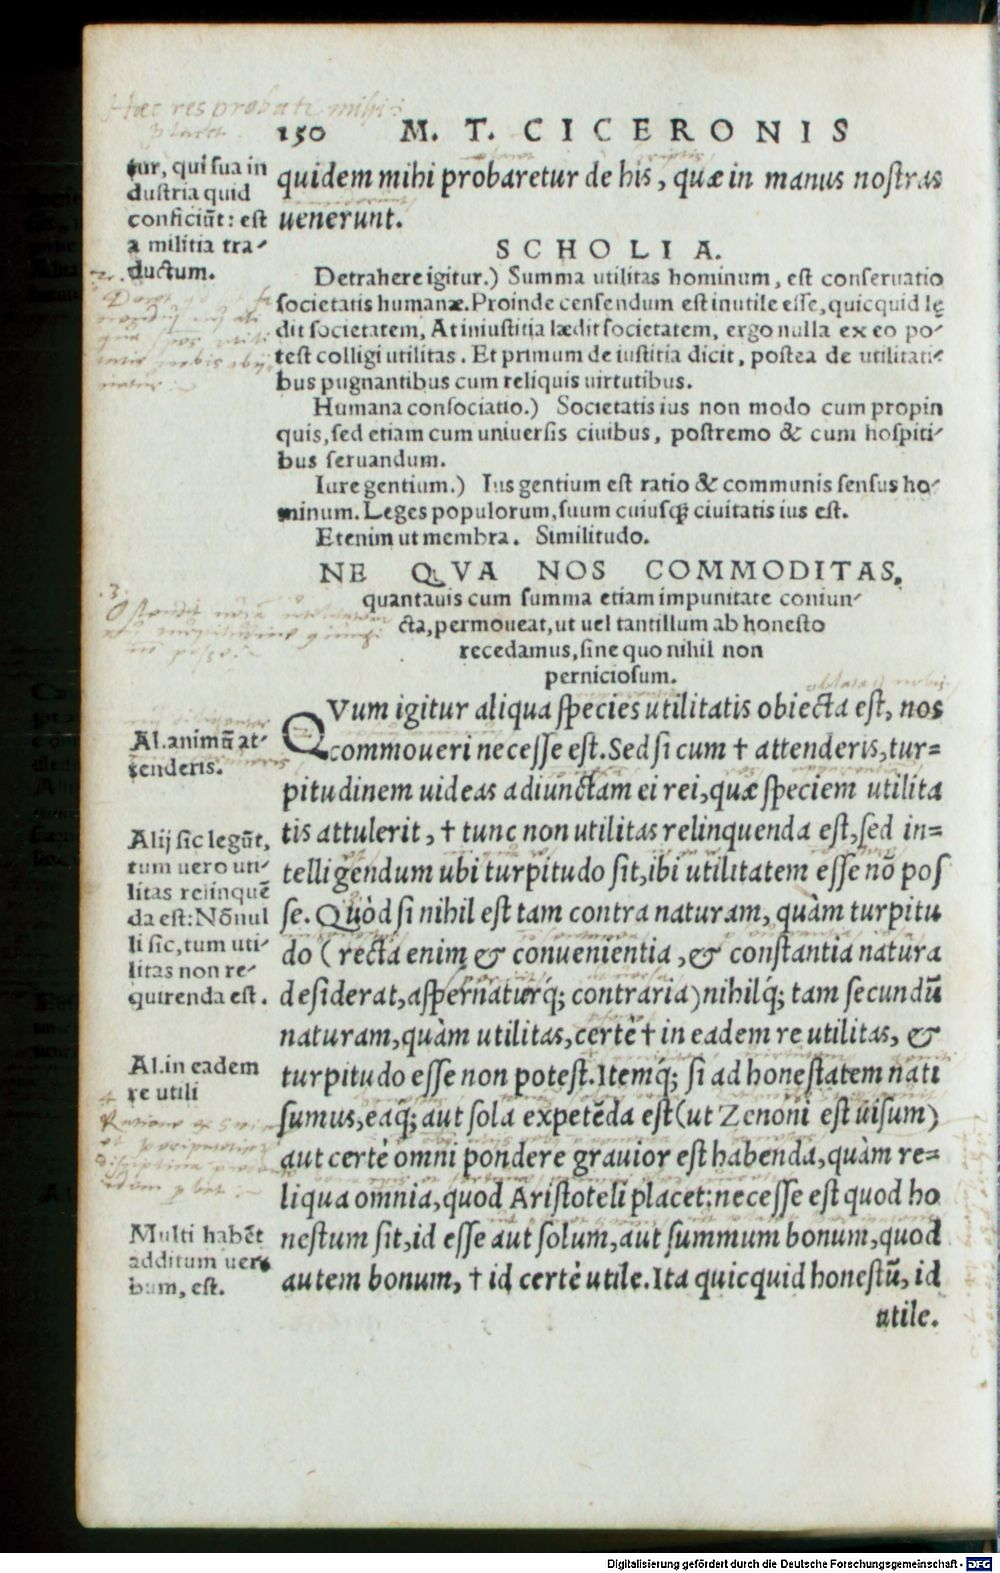 Hæc res probatur mihi:
150 M. T. CICERONIS
tur, qui sua in
dustria quid
conficiũt: est
a militia tra-
ductum.
quidem mihi probaretur de his, quæ in manus nostras
uenerunt.
SCHOLIA.
Detrahere igitur.) Summa utilitas hominum, est conseruatio
societatis humanæ. Proinde censendum est inutile esse, quicquid lę
dit societatem, At iniustitia lædit societatem, ergo nulla ex eo po-
test colligi utilitas. Et primum de iustitia dicit, postea de utilitati-
bus pugnantibus cum reliquis uirtutibus.
Humana consociatio.) Societatis ius non modo cum propin
quis, sed etiam cum uniuersis ciuibus, postremo & cum hospiti-
bus seruandum.
Iure gentium.) Ius gentium est ratio & communis sensus ho-
minum. Leges populorum, suum cuiusq; ciuitatis ius est.
Etenim ut membra. Similitudo.
NE QVA NOS COMMODITAS,
quantauis cum summa etiam impunitate coniun-
cta, permoueat, ut uel tantillum ab honesto
recedamus, sine quo nihil non
perniciosum.
QVum igitur aliqua species utilitatis obiecta est, nos
commoueri necesse est. Sed si cum † attenderis, tur=
pitudinem uideas adiunctam ei rei, quæ speciem utilita
tis attulerit, † tunc non utilitas relinquenda est, sed in=
telligendum ubi turpitudo sit, ibi utilitatem esse nõ pos
se. Quòd si nihil est tam contra naturam, quàm turpitu
do (recta enim & conuenientia, & constantia natura
desiderat, aspernaturq́; contraria) nihilq́; tam secundũ
naturam, quàm utilitas, certè † in eadem re utilitas, &
turpitudo esse non potest. Itemq́; si ad honestatem nati
sumus, eaq́; aut sola expetẽda est (ut Zenoni est uisum)
aut certè omni pondere grauior est habenda, quàm re=
liqua omnia, quod Aristoteli placet: necesse est quod ho
nestum sit, id esse aut solum, aut summum bonum, quod
autem bonum, † id certè utile. Ita quicquid honestũ, id
utile.
Al. animũ at-
tenderis.
Alij sic legũt,
tum uero uti-
litas relinquẽ
da est: Nõnul
li sic, tum uti-
litas non re-
quirenda est.
Al. in eadem
re utili
Multi habẽt
additum uer-
bum, est.
Digitalisierung gefördert durch die Deutsche Forschungsgemeinschaft - DFG